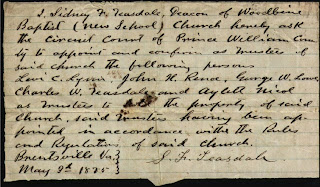 I, Sidney F. Teasdale, Deacon of Woodbine
Baptist (New School) Church hereby ask
the Circuit Court of Prince William Coun
ty to appoint and confirm as Trustees of
said church the following persons
Levi C. Lynn, John R. Rence, George W. Lowe,
Charles W. Teasdale, and Aylett Nicol
as Trustees to the property of said
Church, said Trustees having been ap-
pointed in accordance with the Rules
and Regulations of said Church.
Brentsville Va.}
May 9th 1895} S. F. Teasdale